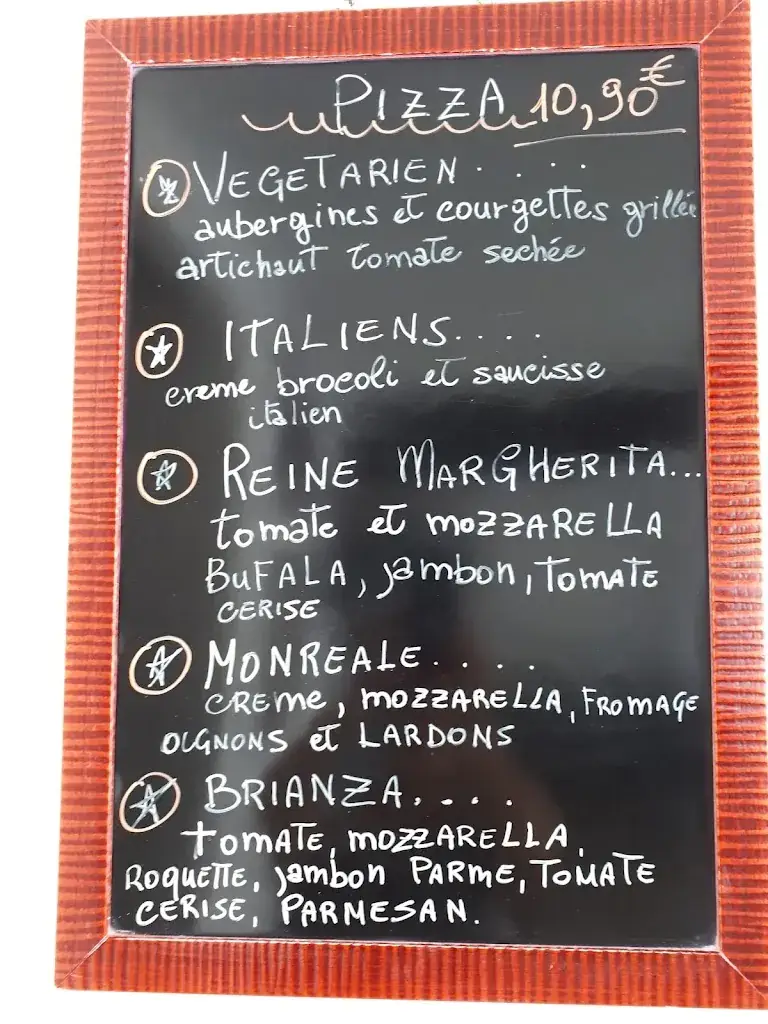 PIZZA 10,90€
VEGETARIEN . . . .
aubergines et courgettes grillée
artichaut tomate sechée
ITALIENS....
creme brocoli et saucisse
italien
REINE MARGHERITA...
tomate et mozzARELLA
BuFALA, jambon, TOMATE
CERISE
MONREALE....
CREme, mOZZARELLA, FROMAGE
OIGNONS et LARDONS
BRIANZA....
tomATE, mOZZARELLA,
ROQUETTE, jambon PARME, TOMATE
CERISE, PARMESAN.